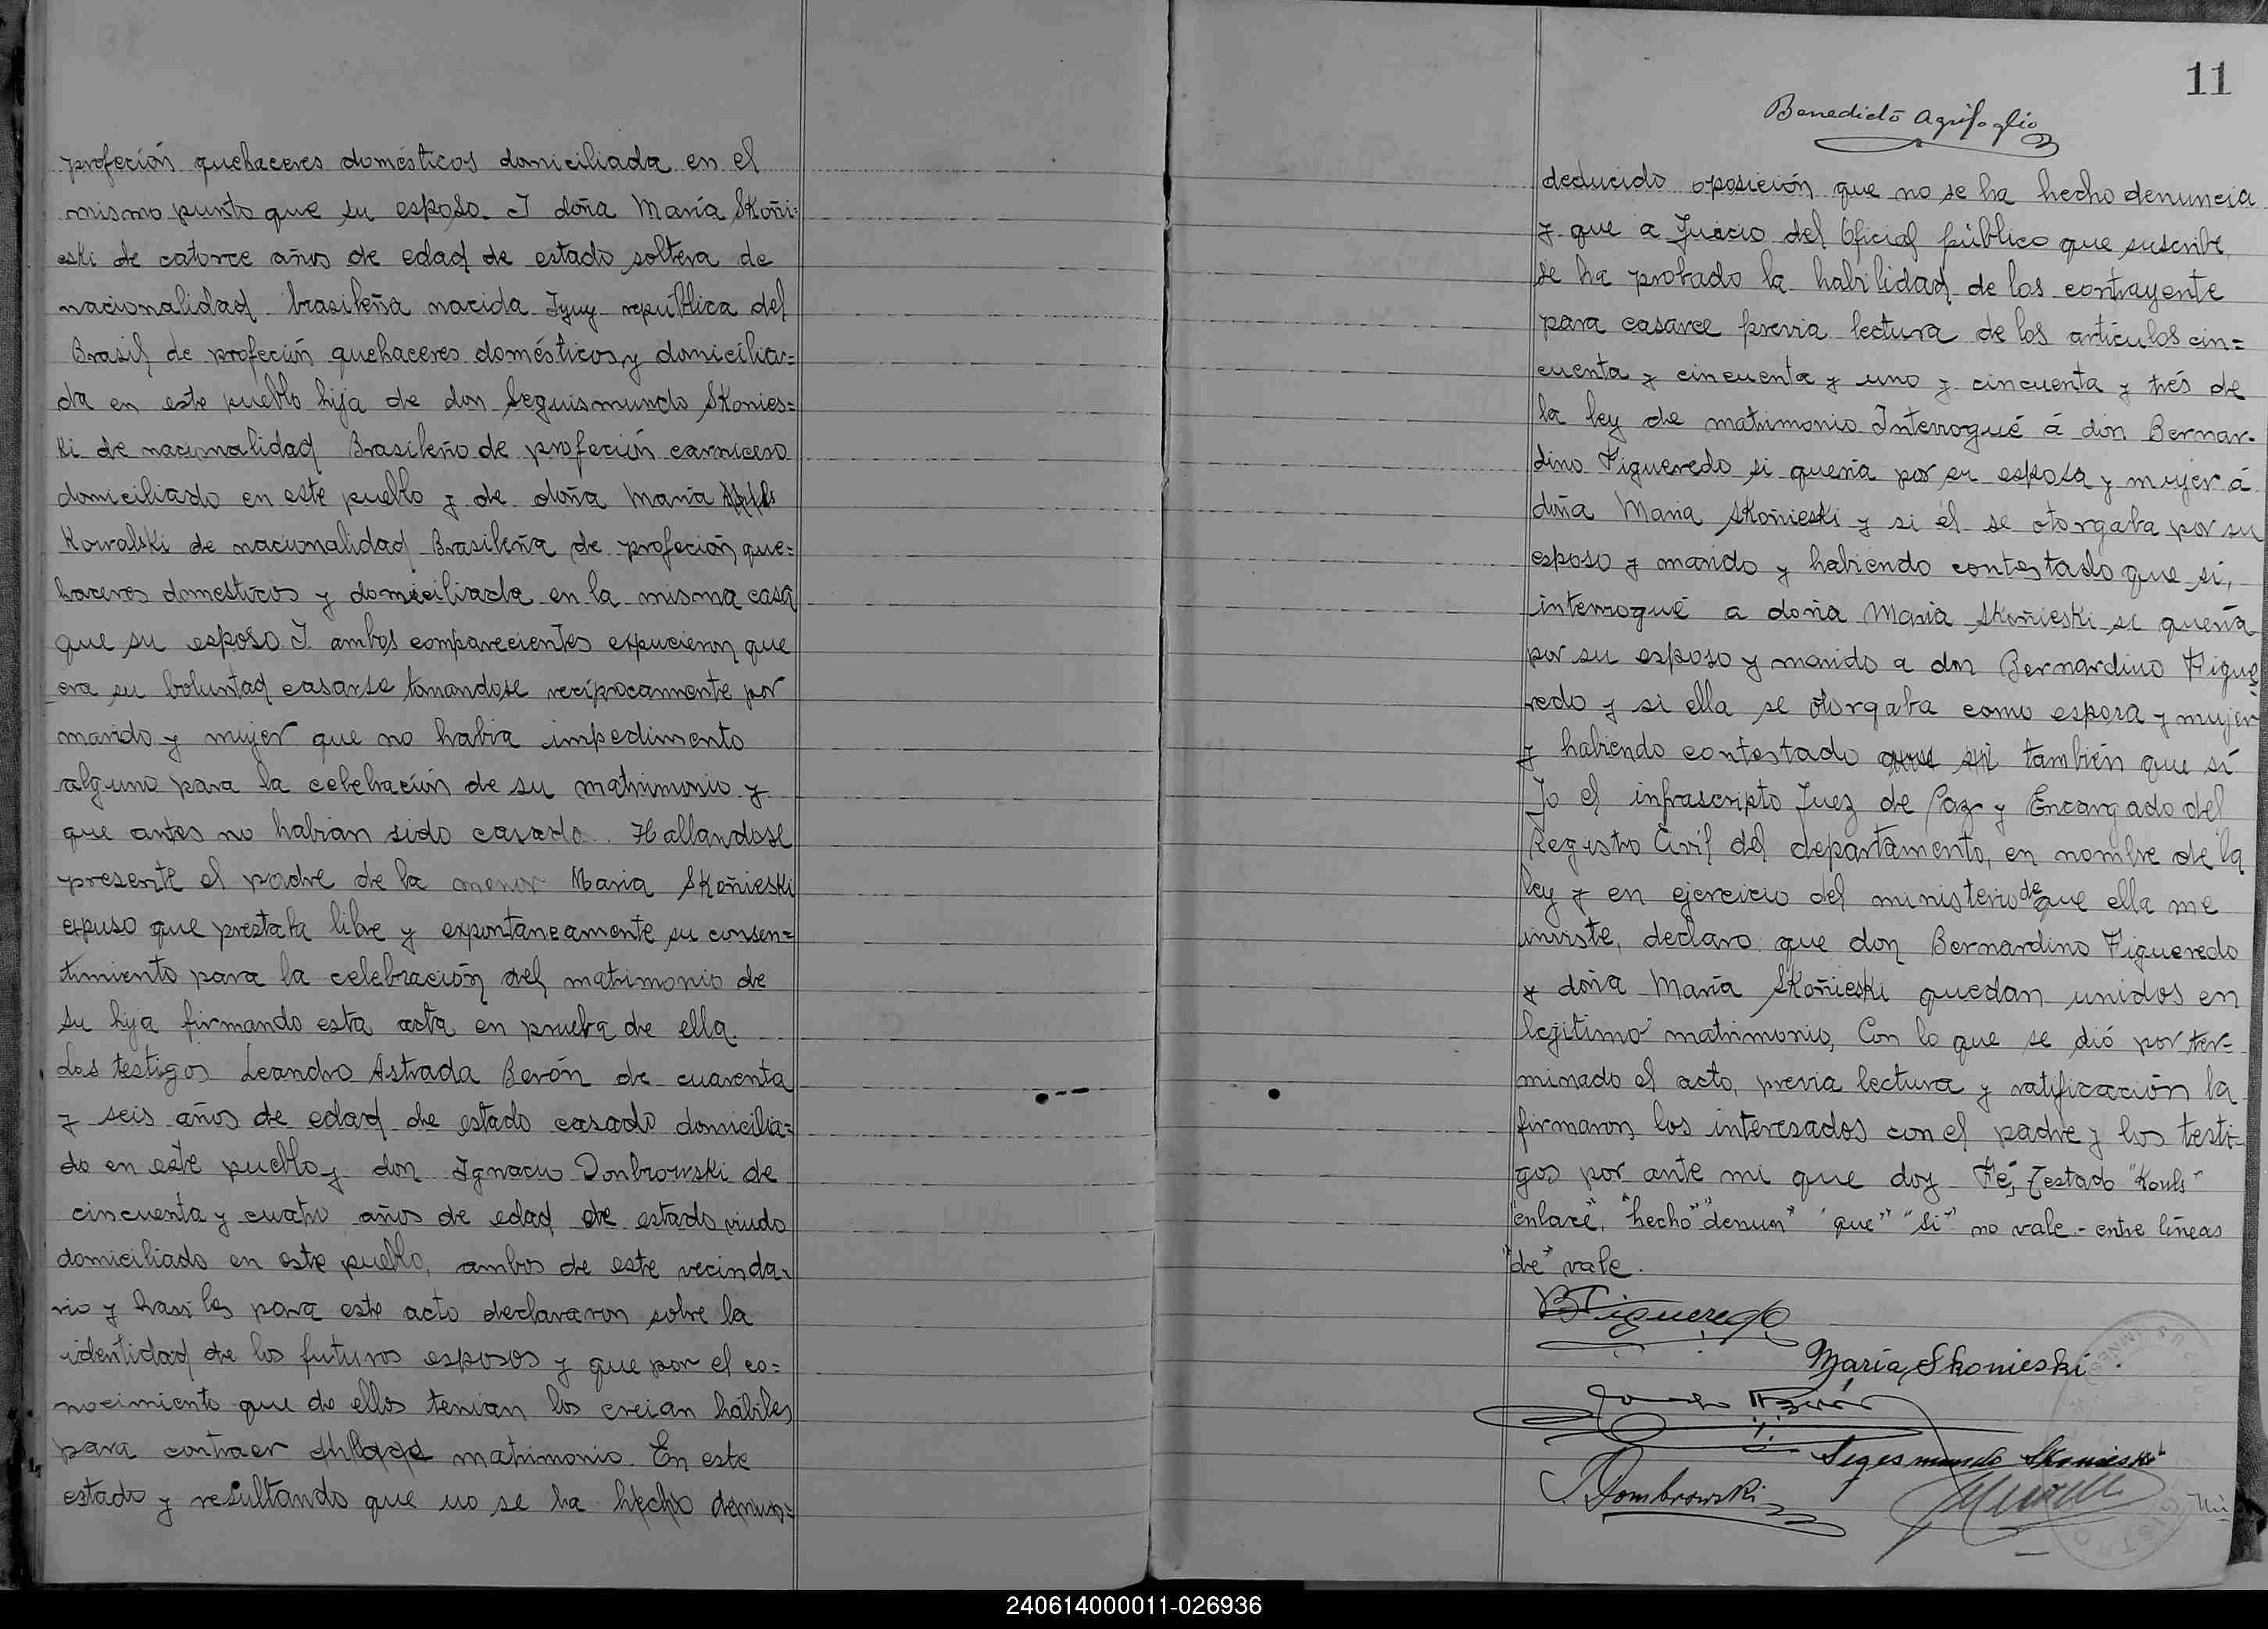 profeción quehaceres domésticos domiciliada en el
mismo punto que su esposo. I doña María Skoñi=
eski de catorce años de edad de estado soltera de
nacionalidad brasileña nacida Iyuy república del
Brasil de profeción quehaceres domésticos y domicilia=
da en este pueblo hija de don Seguismundo Skonies=
ki de nacionalidad Brasileño de profeción carnicero
domiciliado en este pueblo y de doña María
Kowalski de nacionalidad Brasileña de profeción que=
haceres domesticos y domiciliada en la misma casa
que su esposo. I ambos comparecientes expucieron que
era su boluntad casarse tomandose recíprocamente por
marido y mujer que no habia impedimento
alguno para la celebración de su matrimonio y
que antes no habian sido casado. Hallandose
presente el padre de la menor Maria Skoñieski
expuso que prestaba libre y expontaneamente su consen=
timiento para la celebración del matrimonio de
su hija firmando esta acta en prueba de ella.
Los testigos Leandro Astrada Berón de cuarenta
y seis años de edad de estado casado domicilia=
do en este pueblo y don Ignacio Donbrowski de
cincuenta y cuatro años de edad de estado viudo
domiciliado en este pueblo, ambos de este vecinda=
rio y para este acto declararon sobre la
identidad de los futuros esposos y que por el co=
nocimiento que de ellos tenian los creian hábiles
para contraer enlace matrimonio. En este
estado y resultando que no se ha hecho denun=
11
Benedicto Agrifoglio
deducido oposición que no se ha hecho denuncia
y que a Juicio del Oficial público que suscribe
se ha probado la habilidad de los contrayente
para casarce previa lectura de los artículos cin=
cuenta y cincuenta y uno y cincuenta y trés de
la ley de matrimonio. Interrogué á don Bernar-
dino Figueredo si quería por su esposa y mujer á
doña Maria Skoñieski y si él se otorgaba por su
esposo y marido y habiendo contestado que sí,
interrogué a doña María Skoñieski si quería
por su esposo y marido a don Bernardino Figue
redo y si ella se otorgaba como esposa y mujer
y habiendo contestado que si también que sí
Jo el infrascripto Juez de Paz y Encargado del
Registro Civil del departamento, en nombre de la
ley y en ejercicio del ministerio de que ella me
inviste, declaro que don Bernardino Figueredo
y doña María Skoñieski quedan unidos en
legitimo matrimonio, Con lo que se dió por ter=
minado el acto, previa lectura y ratificación la
firmaron los interesados con el padre y los testi-
gos por ante mi que doy Fé, Testado "Kouls"
"enlace", "hecho" "denun" "que" "si" no vale - entre líneas
"de" vale.
BFigueredo
María Skonieski
Berón
Segesmundo Skonieski
I. Dombrowski
240614000011-026936